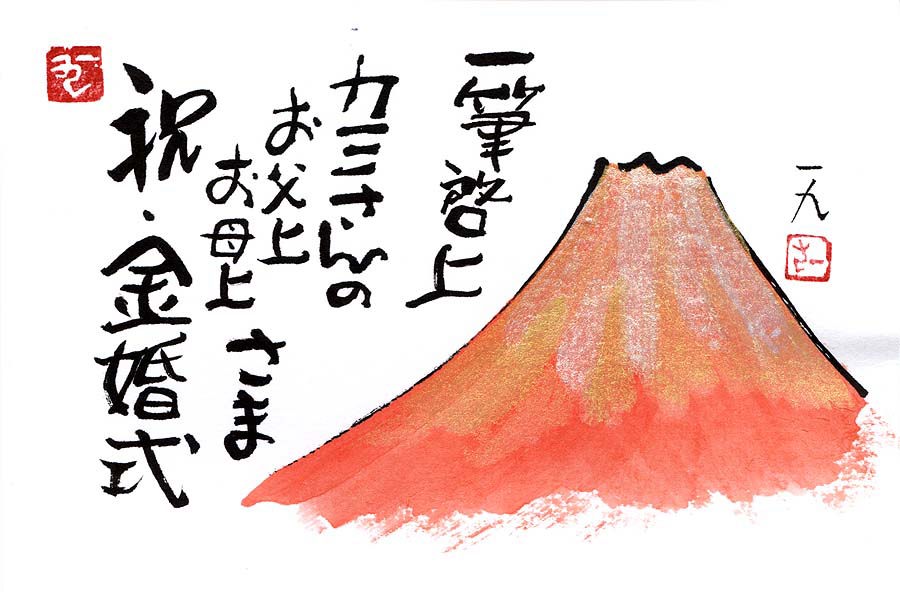 一筆啓上
カミさんの
お父上
お母上
さま
祝・金婚式
一九